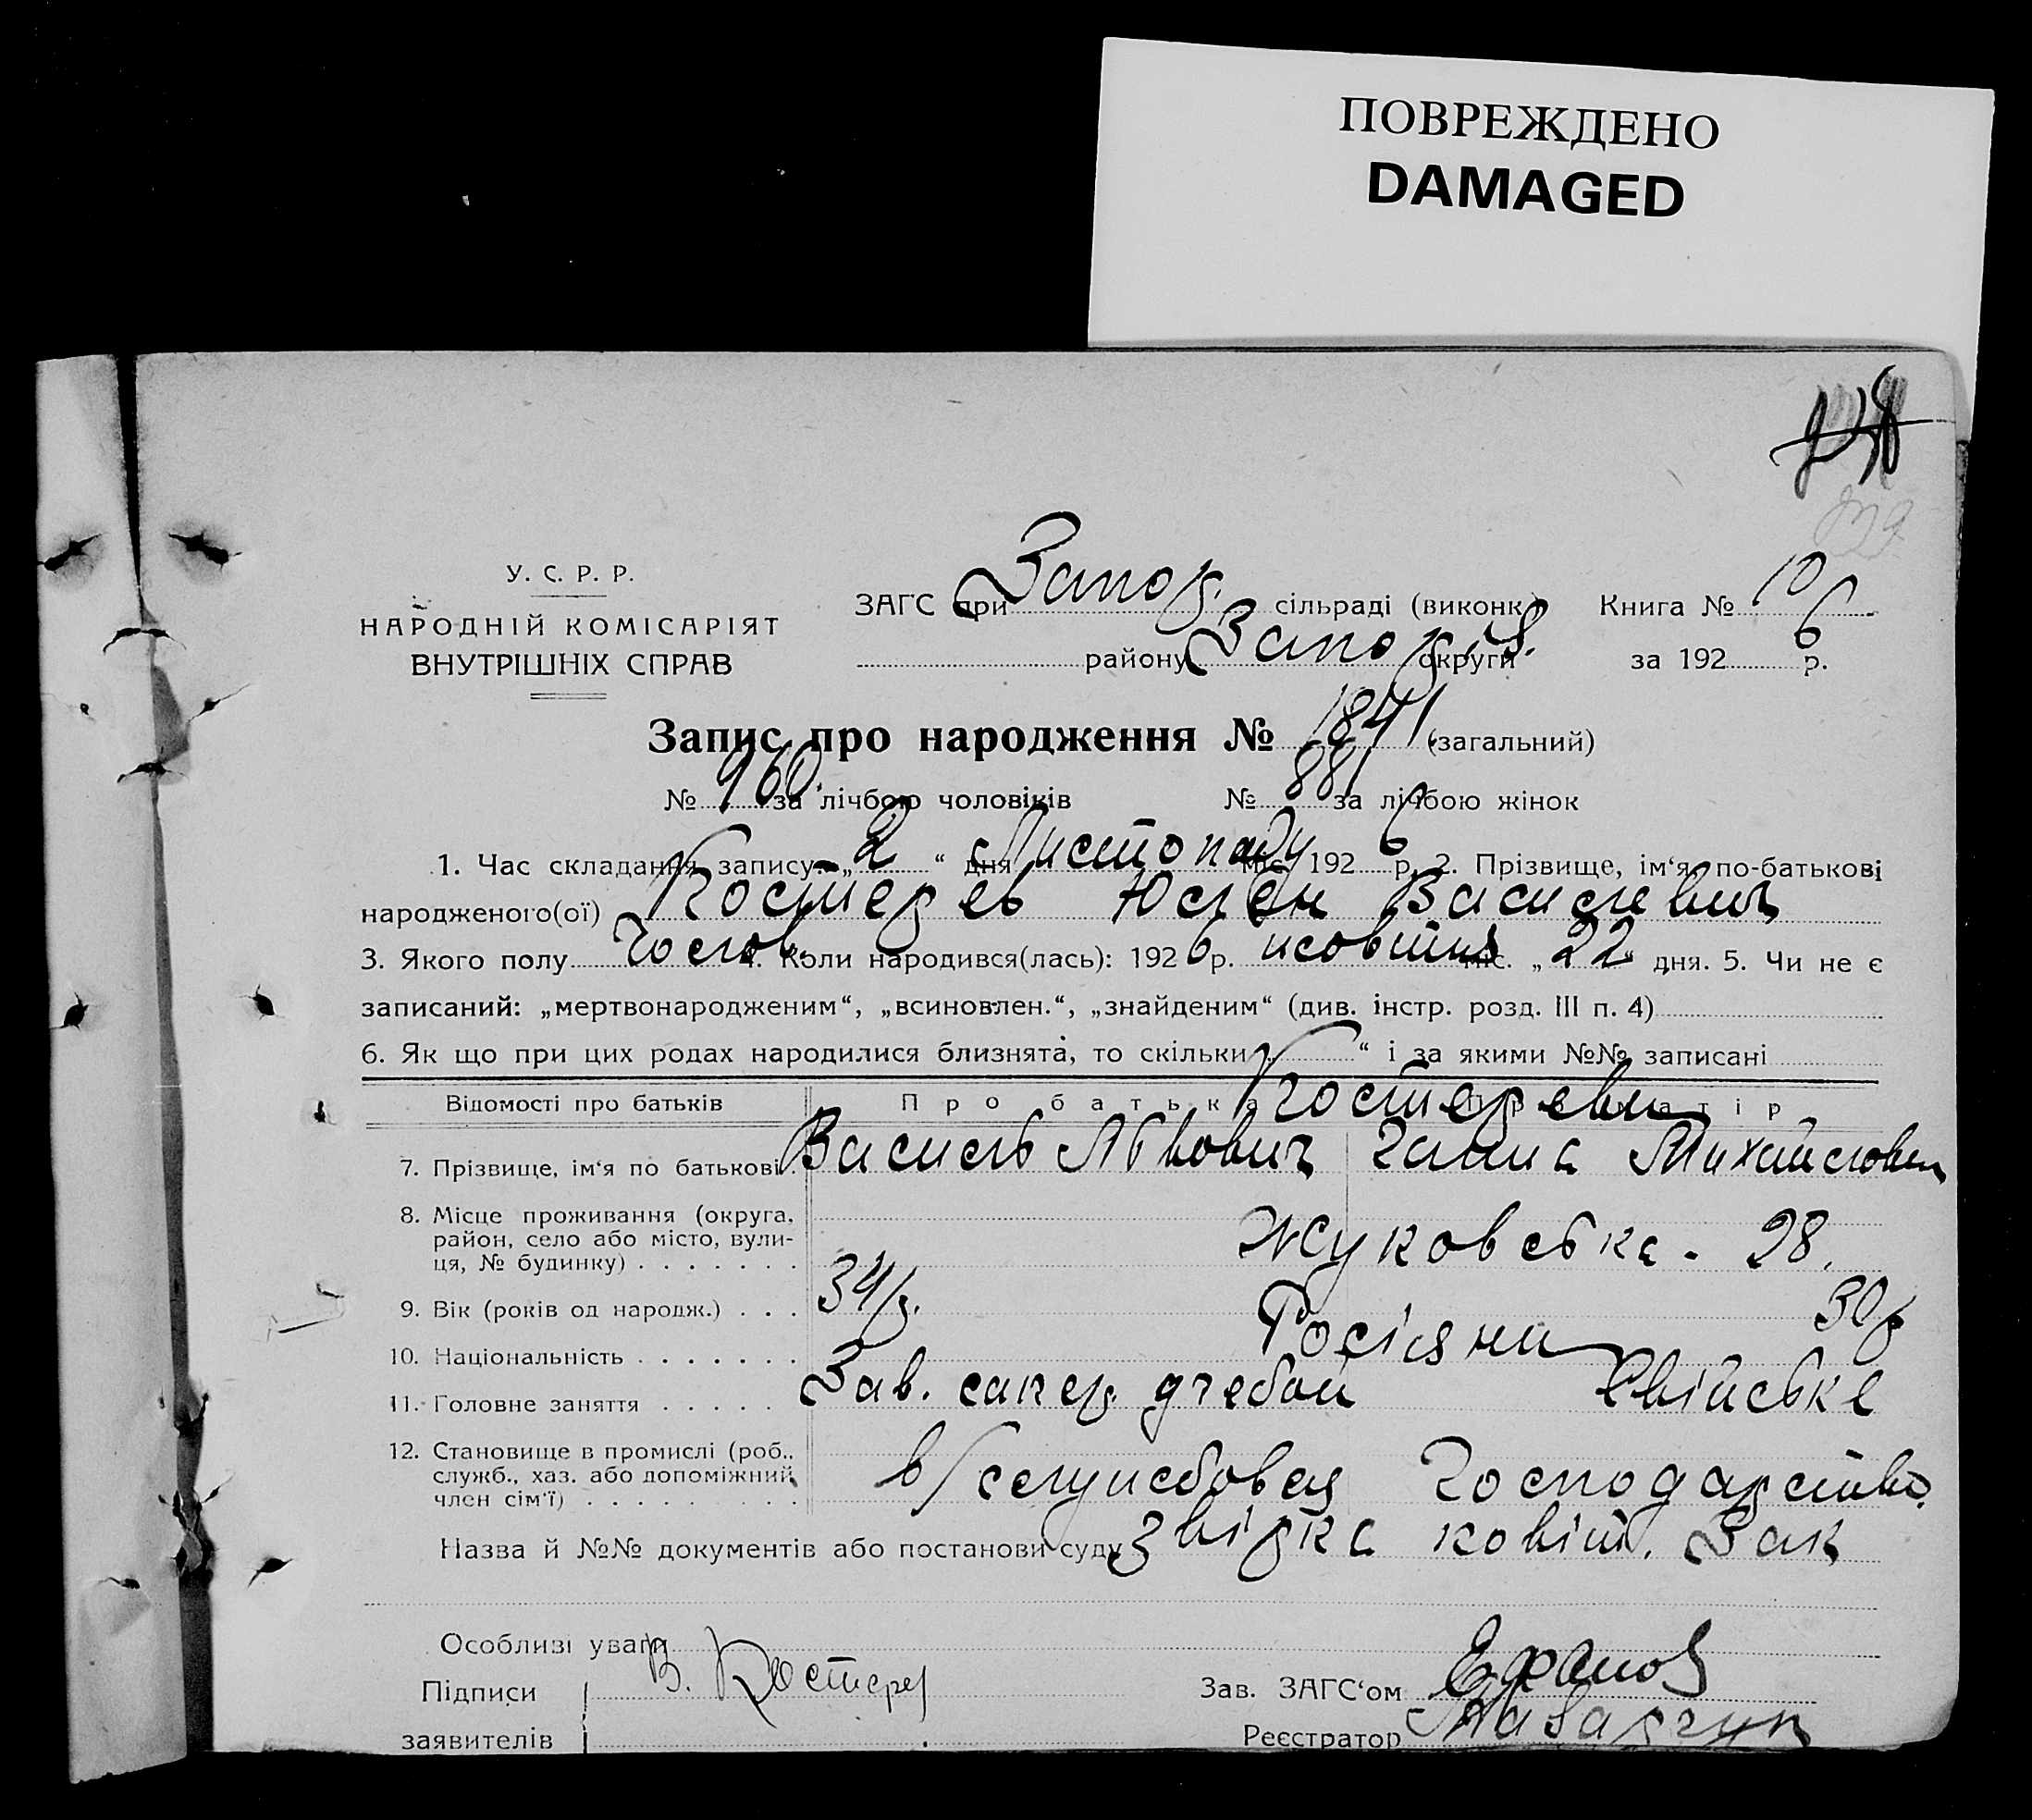 ПОВРЕЖДЕНО
DAMAGED
У. С. Р. Р.
НАРОДНІЙ КОМІСАРІЯТ
ВНУТРІШНІХ СПРАВ
ЗАГС при Запор. сільраді (виконк.) Книга № 10
району Запоріз. округи за 1926 р.
Запис про народження № 1841 (загальний)
№ 960 за лічбою чоловіків № 881 за лічбою жінок
1. Час складання запису: „2“ дня Листопаду міс. 1926 р. 2. Прізвище, ім‘я, по-батькові
народженого(ої) Костерев Юлєн Василевич
3. Якого полу Чолов. 4. Коли народився(лась): 1926 р. жовтня міс. „22“ дня. 5. Чи не є
записаний: „мертвонародженим“, „всиновлен.“, „знайденим“ (див. інстр. розд. III п. 4)
6. Як що при цих родах народилися близнята, то скільки „ “ і за якими №№ записані
Відомості про батьків Про батька Про матір
Костереви
7. Прізвище, ім‘я по батькові Василь Львович Ганна Михайловна
8. Місце проживання (округа, район, село або місто, вулиця, № будинку) Жуковська - 28.
9. Вік (років од народж.) 34 р. 30 р
10. Національність Росіяни
11. Головне заняття Зав. сапер. учебой Хвійське
12. Становище в промислі (роб., служб., хаз. або допоміжний член сім‘ї) в/службовця Господарство
Назва й №№ документів або постанови суду Звірка ковіт. Зак
Особливі уваги
Підписи В. Костерев Зав. ЗАГС‘ом
заявителів Реєстратор